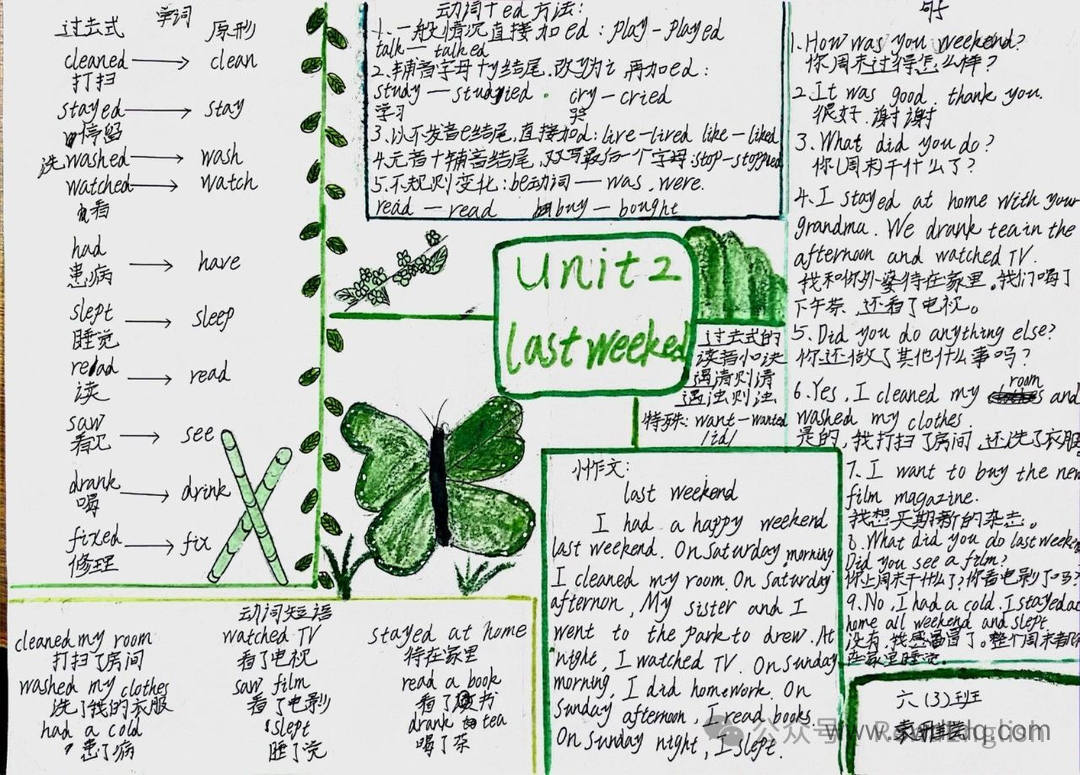 单词
过去式 原形
cleaned → clean
打扫
stayed → stay
停留
洗 washed → wash
watched → watch
看
had → have
患病
slept → sleep
睡觉
read → read
读
saw → see
看见
drank → drink
喝
fixed → fix
修理
动词+ed方法:
1.一般情况直接加ed:play-played
talk-talked
2.辅音字母+y结尾.改y为i再加ed:
study-studied. cry-cried
学习 哭
3.以不发音e结尾,直接加d:live-lived like-liked
4.元音+辅音结尾,双写最后一个字母:stop-stopped
5.不规则变化:be动词-was,were.
read-read buy-bought
Unit2
last weeked
过去式的
读音小诀
遇清则清
遇浊则浊
特殊:want-wanted
/id/
句
1.How was you weekend?
你周末过得怎么样?
2.It was good, thank you.
很好.谢谢
3.What did you do?
你周末干什么了?
4.I stayed at home with your
grandma. We drank tea in the
afternoon and watched TV.
我和你外婆待在家里。我们喝了
下午茶.还看了电视。
5.Did you do anything else?
你还做了其他什么事吗?
6.Yes, I cleaned my room and
washed my clothes.
是的,我打扫了房间,还洗了衣服
7.I want to buy the new
film magazine.
我想买期新的杂志。
8.What did you do last weeken
Did you see a film?
你上周末干什么了?你看电影了吗?
9.No, I had a cold. I stayed at
home all weekend and slept.
没有,我感冒了。整个周末都
在家里睡觉
小作文:
last weekend
I had a happy weekend
last weekend. On Saturday morning
I cleaned my room. On Saturday
afternoon, My sister and I
went to the park to drew. At
night, I watched TV. On Sunday
morning, I did homework. On
Sunday afternoon, I read books.
On Sunday night, I slept.
动词短语
cleaned my room watched TV stayed at home
打扫了房间 看了电视 待在家里
washed my clothes saw film read a book
洗了我的衣服 看了电影 看了书
had a cold slept drank tea
患了病 睡了觉 喝了茶
六(3)班
公众号
www.
.com